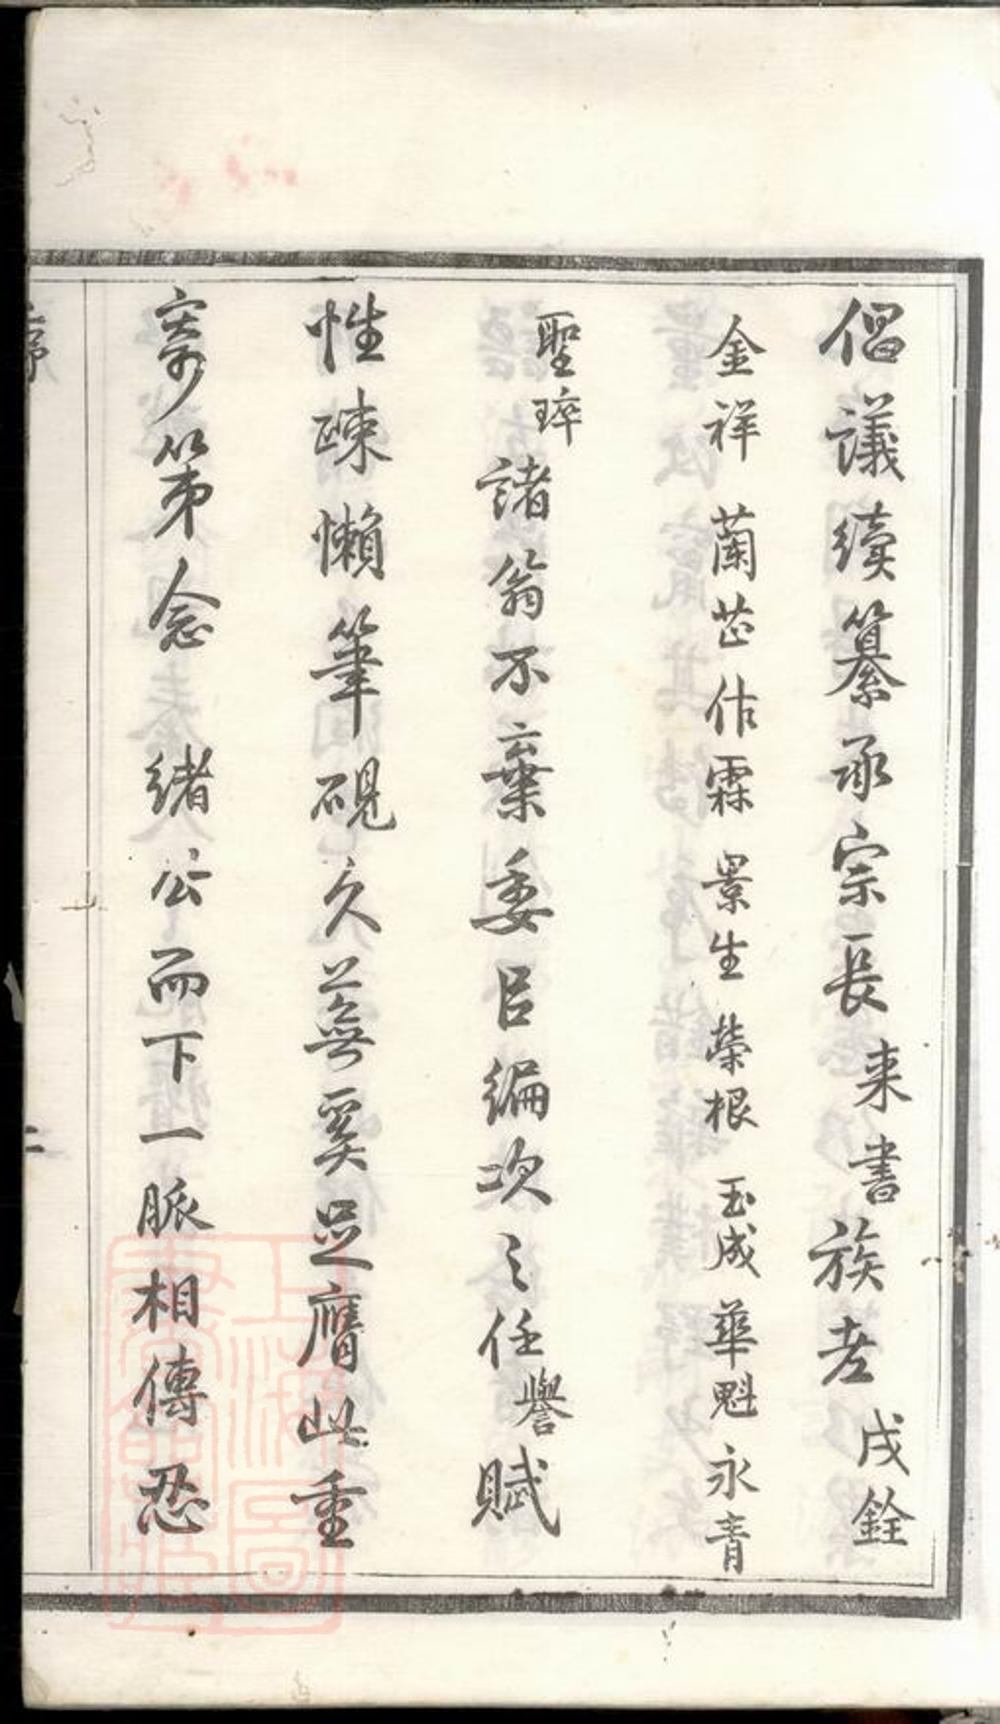 倡議續纂承宗長来書族老戌銓
金祥蘭芷作霖景生榮根玉成華魁永青
聖琗諸翁不棄委㠯編次之任譽賦
性疎懶筆硯久蕪奚足膺此重
寄第念緒公而下一脈相傳忍
序
二
上海圖書館藏